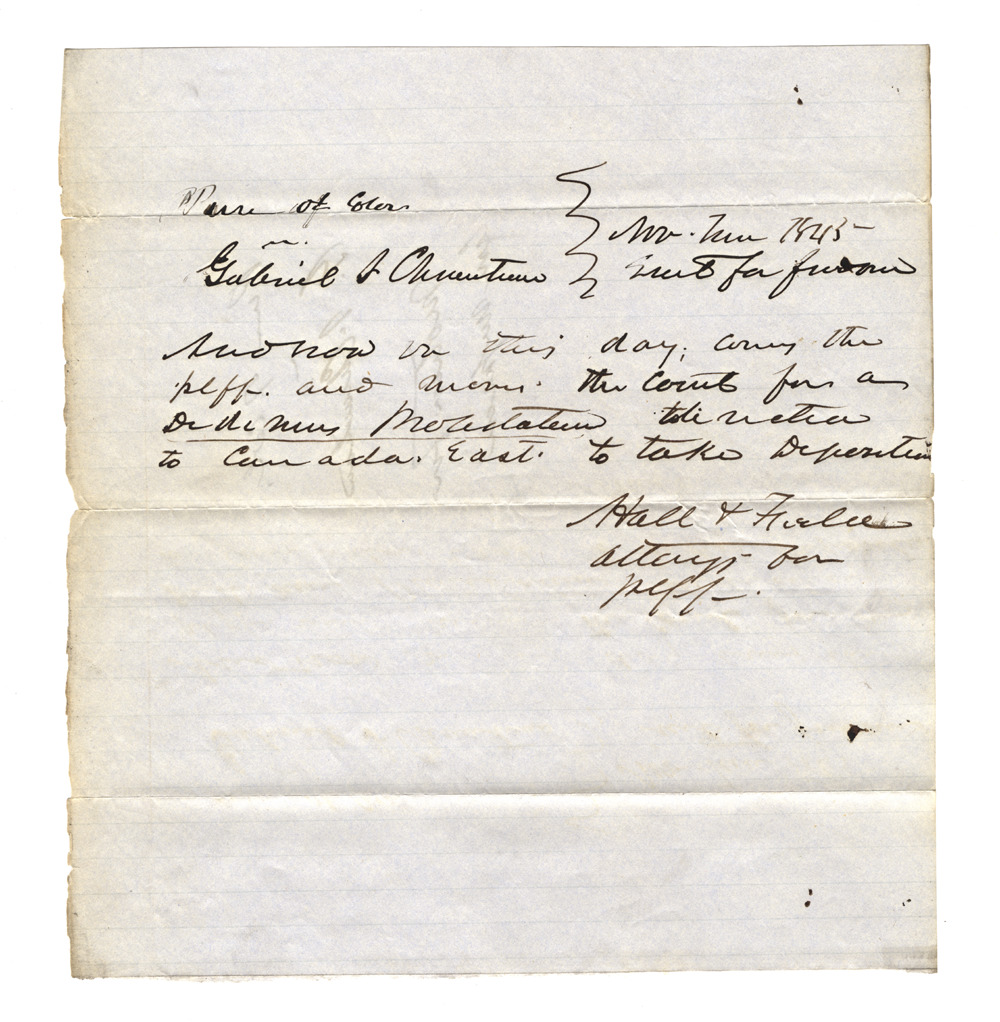 Pierre of Color
vs.
Gabriel S Chouteau
Nov. Term 1845
Suit for freedom
And now on this day, comes the
plff. and moves the Court for a
Dedimus Potestatem directed
to Canada. East. to take Deposition
Hall & Field
attorys for
plff.